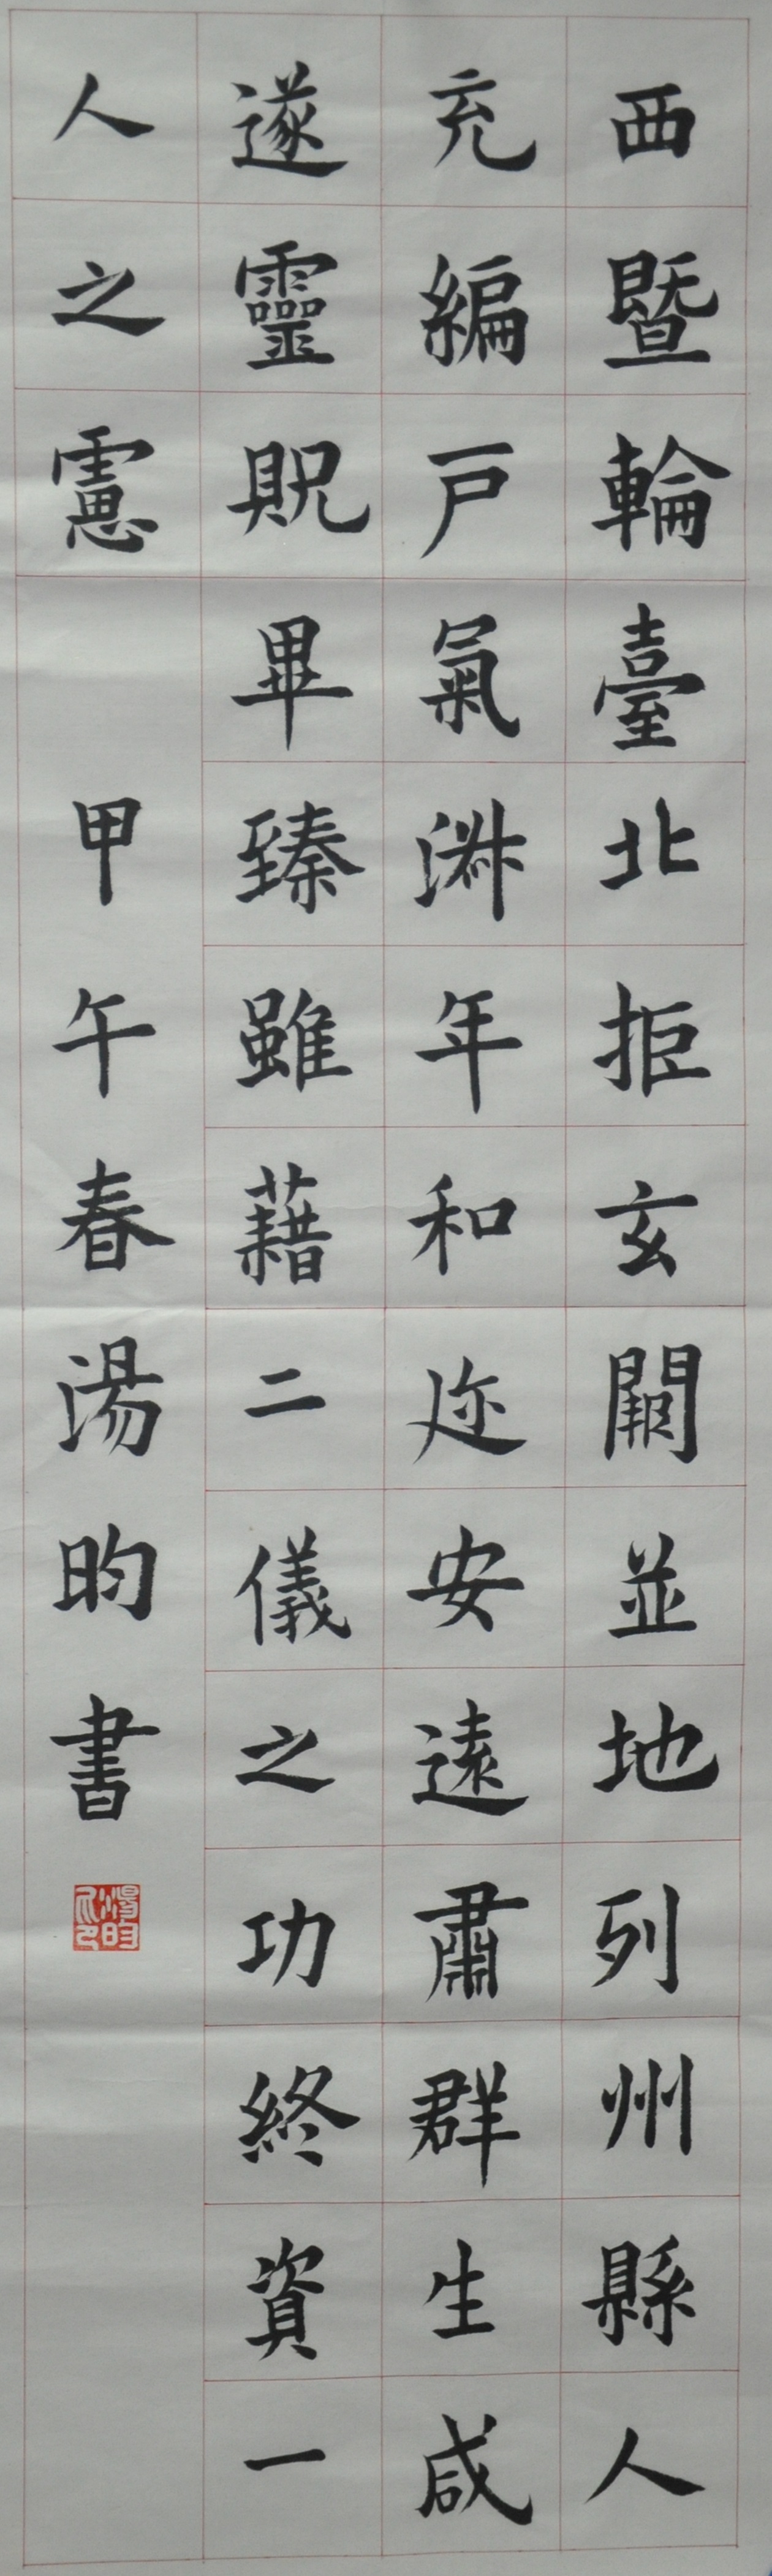 西暨輪臺北拒玄闕並地列州縣人
充編戶氣淑年和迩安遠肅群生咸
遂靈貺畢臻雖藉二儀之功終資一
人之慮
甲午春湯昀書
湯昀之印